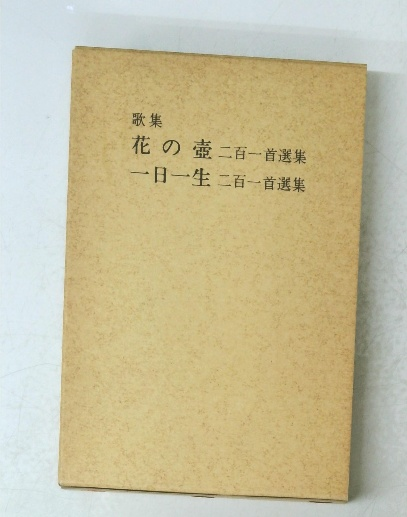 歌集
花の壺 二百一首選集
一日一生 二百一首選集